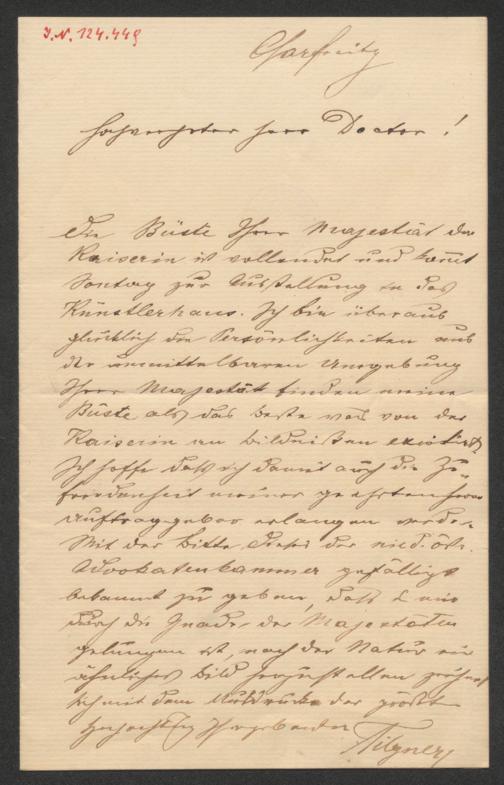 J.N. 124.448
Charfreitg
Hochverehrter Herr Doctor!
Die Büste Ihrer Majestät der
Kaiserin ist vollendet und kommt
Sontag zur Ausstellung in das
Künstlerhaus. Ich bin überaus
glücklich die Persönlichkeiten aus
der unmittelbaren Umgebung
Ihrer Majestät finden meine
Büste als das beste was von der
Kaiserin an Bildnissen existirt.
Ich hoffe daß ich damit auch die Zu-
friedenheit meiner geehrten Herrn
Auftraggeber erlangen werde.
Mit der Bitte, dieses der nied. öst.
Advokatenkammer gefälligst
bekannt zu geben, daß es mir
durch die Gnade der Majestäten
gelungen ist, nach der Natur ein
ähnliches Bild herzustellen zeichnet
sich mit dem Ausdrucke der größten
Hochachtung Ihr ergebenster
Tilgner